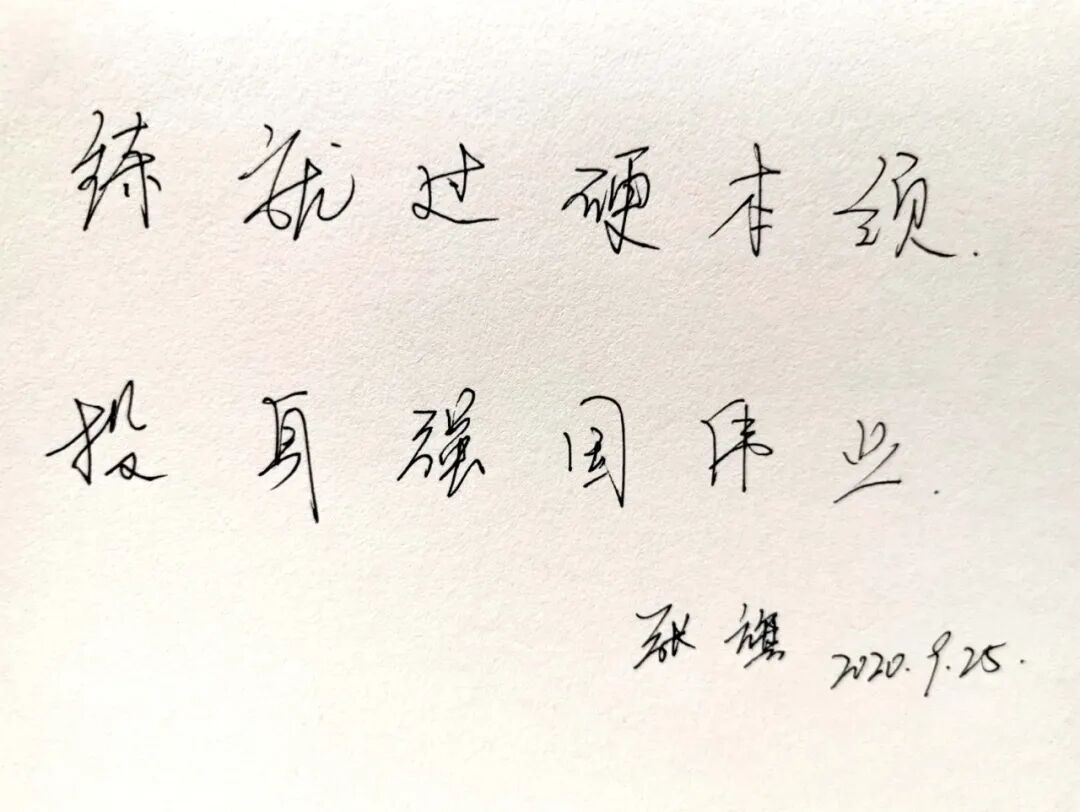 练就过硬本领.
投身强国伟业.
张旗 2020.9.25.